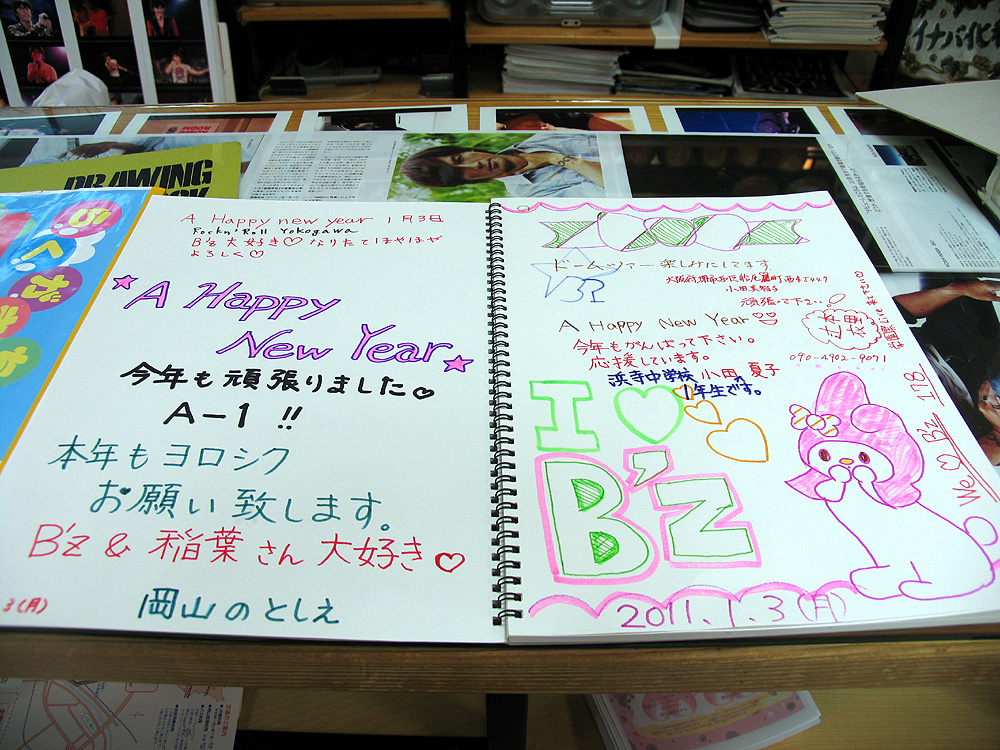 イナバ化
DRAWING
らくがき
A Happy new year 1月3日
Rockn' Roll Yokogawa
B'z 大好き♡ なりたてほやほや
よろしく♡
A Happy
New Year
今年も頑張りました♡
A-1 !!
本年もヨロシク
お願い致します。
B'z & 稲葉さん 大好き♡
3(月)
岡山のとしえ
ドームツアー楽しみにしてます
頑張って下さい
A HAPPY NEW YEAR
今年もがんばって下さい。
応援しています。
浜寺中学校 小田 夏子
1年生です。
090-4902-9071
I ♡
B'z
We♡B'z 178.
2011.1.3(月)